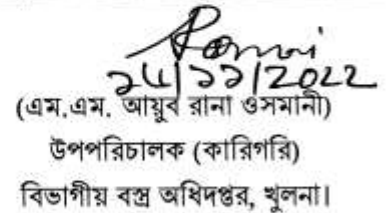 ২৪/১১/2022
(এম.এম. আয়ুব রানা ওসমানী)
উপপরিচালক (কারিগরি)
বিভাগীয় বস্ত্র অধিদপ্তর, খুলনা।